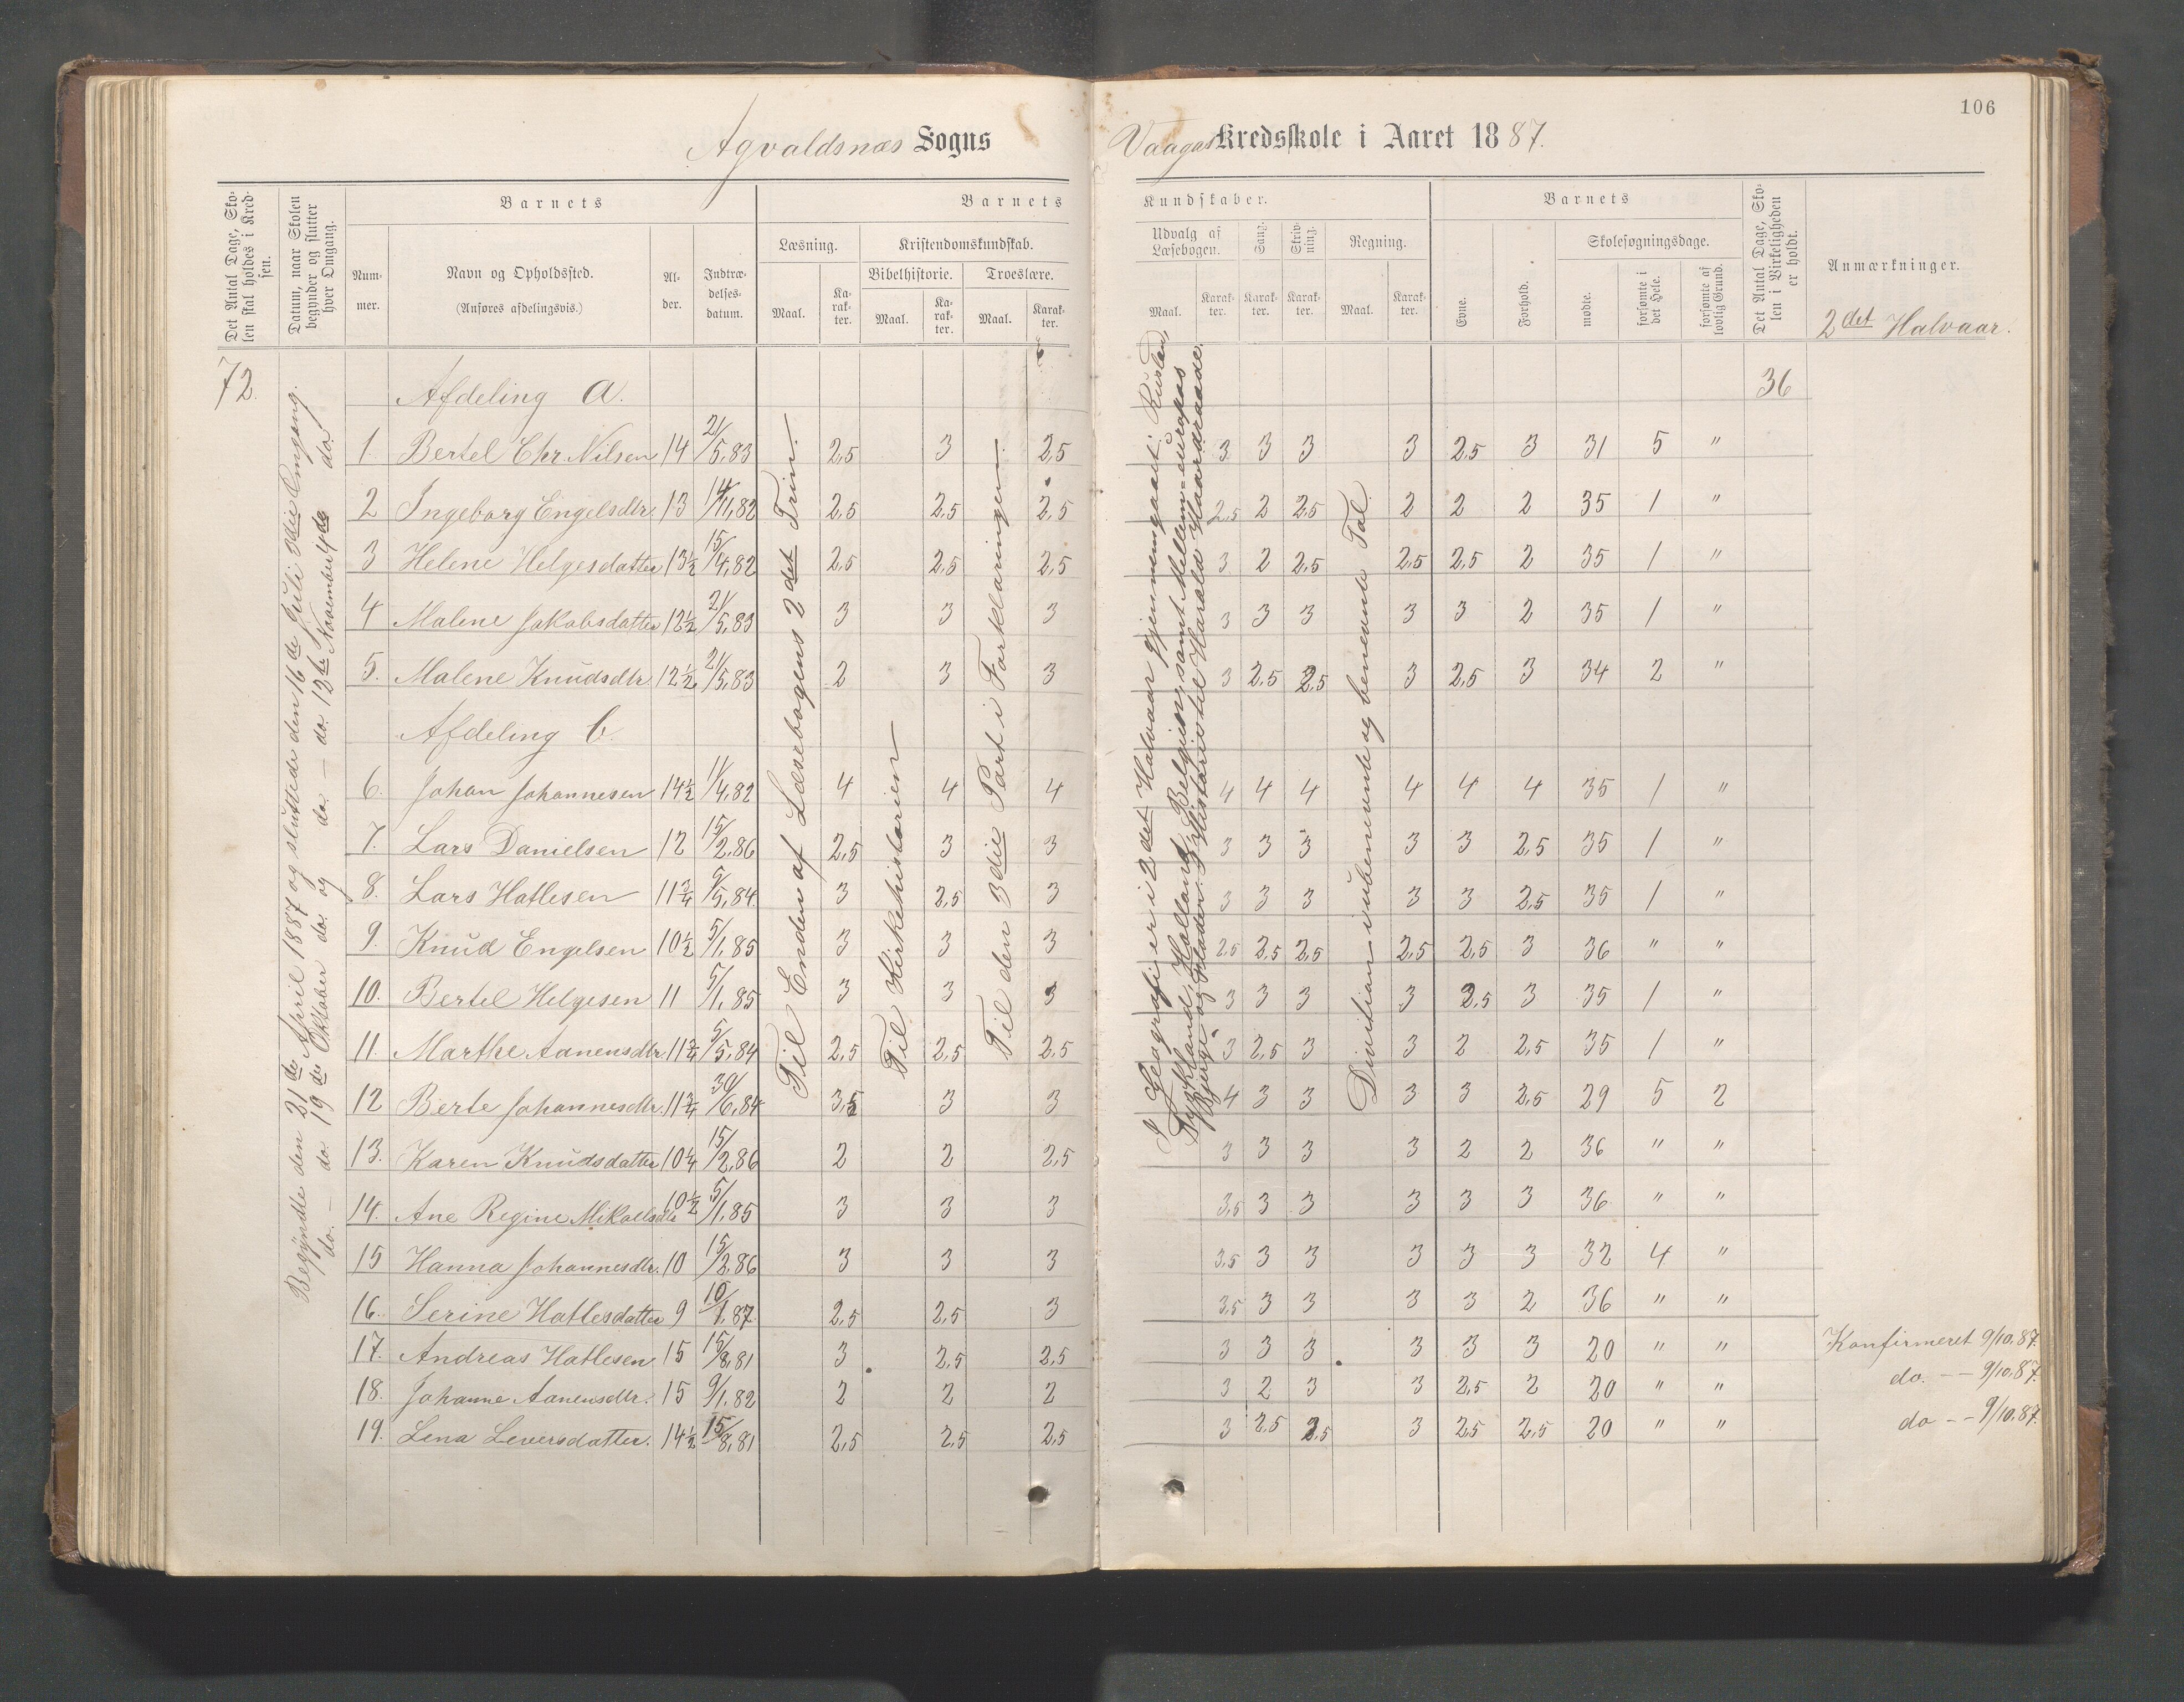 106
Agvaldsnæs Sogns Vaages Kredsskole i Aaret 1887.
Det Antal Dage, Skolen skal holdes i Kredsen.
Datum, naar Skolen begynder og slutter hver Omgang.
Barnets
Nummer.
Navn og Opholdssted.
(Anføres afdelingsvis.)
Alder.
Indtrædelsesdatum.
Barnets Kundskaber.
Læsning.
Maal.
Karakter.
Kristendomskundskab.
Bibelhistorie.
Maal.
Karakter.
Troeslære.
Maal.
Karakter.
Udvalg af Læsebogen.
Maal.
Karakter.
Sang.
Karakter.
Skrivning.
Karakter.
Regning.
Maal.
Karakter.
Barnets
Evne.
Forhold.
Skolesøgningsdage.
mødte.
forsømte i det Hele.
forsømte af lovlig Grund.
Det Antal Dage, Skolen i Virkeligheden er holdt.
Anmærkninger.
2det Halvaar.
72.
Begyndte den 21de April 1887 og sluttede den 16de Juli 3die Omgang.
do. — do 19de Oktober do. og do. — do. 12te November 4de do.
Til Enden af Læsebogens 2det Trin.
Til Kirkehistorien
Til den 3die Part i Forklaringen.
I Geografi er i 2det Halvaar gjennemgaaet: Rusland,
Tyskland, Holland, Belgien, samt Mellem-europas
Bjerge og Floder. I Historie til Harald Haardraade.
Division i ubenævnte og benævnte Tal.
36
Afdeling a.
1. Bertel Chr. Nilsen 14 21/5.83 2,5 3 2,5 3 3 3 3 2,5 3 31 5 "
2 Ingeborg Engelsdtr. 13 14/11.82 2,5 2,5 2,5 2,5 2 2,5 2 2 2 35 1 "
3 Helene Helgesdatter 13½ 15/4.82 2,5 2,5 2,5 3 2 2,5 2,5 2,5 2 35 1 "
4 Malene Jakobsdatter 12½ 21/5.83 3 3 3 3 3 3 3 3 2 35 1 "
5. Malene Knudsdtr. 12½ 21/5.83 2 3 3 3 2,5 2,5 3 2,5 3 34 2 "
Afdeling b.
6. Johan Johannesen 14½ 11/4.82 4 4 4 4 4 4 4 4 4 35 1 "
7. Lars Danielsen 12 15/2.86 2,5 3 3 3 3 3 3 3 2,5 35 1 "
8. Lars Hatlesen 11¾ 5/5.84. 3 2,5 3 3 3 3 3 3 2,5 35 1 "
9. Knud Engelsen 10½ 5/1.85 3 3 3 2,5 2,5 2,5 2,5 2,5 3 36 " "
10. Bertel Helgesen 11 5/1.85 3 3 3 3 3 3 3 2,5 3 35 1 "
11. Marthe Aanensdtr. 11¾ 5/5.84 2,5 2,5 2,5 3 2,5 3 3 2 2,5 35 1 "
12 Berte Johannesdtr. 11¾ 30/6.84 3,5 3 3 4 3 3 3 3 2,5 29 5 2
13. Karen Knudsdatter 10¼ 15/2.86 2 2 2,5 3 3 3 3 2 2 36 " "
14. Ane Regine Mikaelsdtr 10½ 5/1.85 3 3 3 3,5 3 3 3 3 3 36 " "
15 Hanna Johannesdtr. 10 15/2.86 3 3 3 3,5 3 3 3 3 3 32 4 "
16. Serine Hatlesdatter 9 10/1.87 2,5 2,5 3 3,5 3 3 3 3 2 36 " "
17. Andreas Hatlesen 15 15/8.81 3 2,5 2,5 3 3 3 3 3 3 20 " " Konfirmeret 9/10.87.
18. Johanne Aanensdtr. 15 9/1.82 2 2 2 3 2 3 3 2,5 2 20 " " do. – – 9/10.87.
19. Lena Leversdatter. 14½ 15/8.81 2,5 2,5 2,5 3 2,5 2,5 3 2,5 2,5 20 " " do – – 9/10.87.